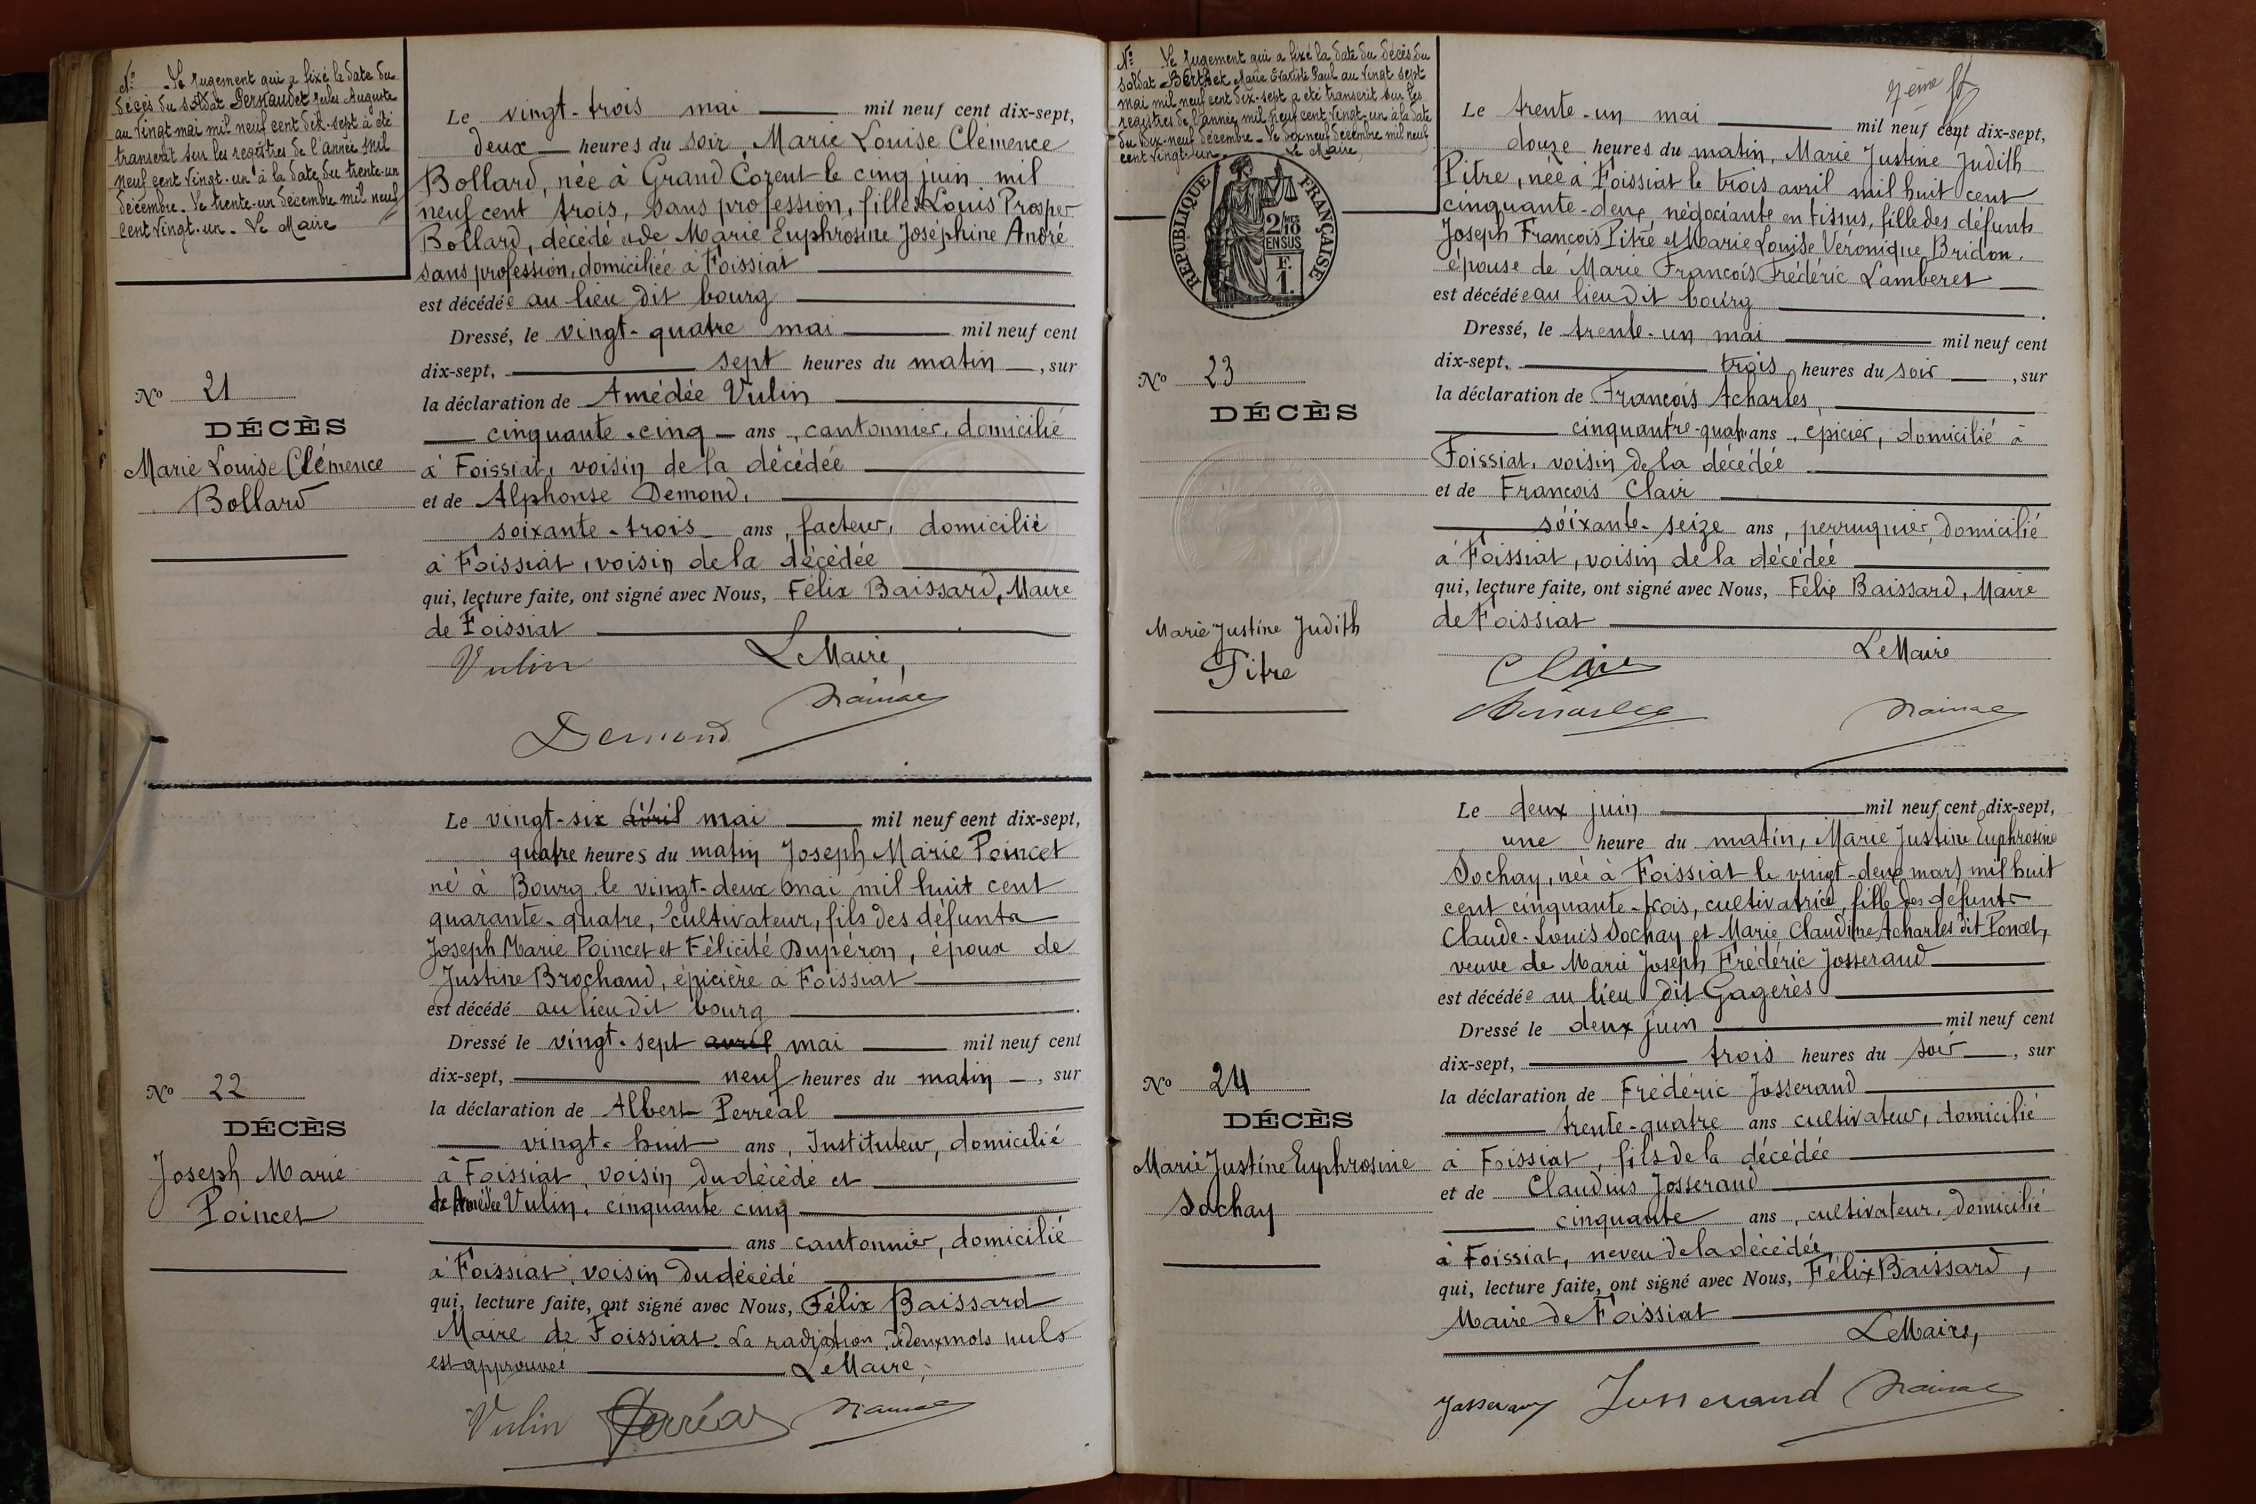 No Le Jugement qui a fixé la date du
décès du soldat Pernaudet Jules Auguste
au vingt mai mil neuf cent dix-sept a été
transcrit sur les registres de l'année mil
neuf cent vingt-un à la date du trente-un
décembre. Le trente-un décembre mil neuf
cent vingt-un. Le Maire
No 21
DÉCÈS
Marie Louise Clémence
Bollard
Le vingt-trois mai mil neuf cent dix-sept,
deux heures du soir, Marie Louise Clémence
Bollard, née à Grand Corent le cinq juin mil
neuf cent trois, sans profession, fille de Louis Prosper
Bollard, décédé et de Marie Euphrosine Joséphine André
sans profession, domiciliée à Foissiat
est décédée au lieu dit bourg
Dressé, le vingt-quatre mai mil neuf cent
dix-sept, sept heures du matin, sur
la déclaration de Amédée Vulin
cinquante-cinq ans, cantonnier, domicilié
à Foissiat, voisin de la décédée
et de Alphonse Demond,
soixante-trois ans, facteur, domicilié
à Foissiat, voisin de la décédée
qui, lecture faite, ont signé avec Nous, Félix Baissard, Maire
de Foissiat
Le Maire,
Vulin
Demond
No 22
DÉCÈS
Joseph Marie
Poincet
Le vingt-six avril mai mil neuf cent dix-sept,
quatre heures du matin Joseph Marie Poincet
né à Bourg le vingt-deux mai mil huit cent
quarante-quatre, cultivateur, fils des défunts
Joseph Marie Poincet et Félicité Dupéron, époux de
Justine Brochand, épicière à Foissiat
est décédé au lieu dit bourg
Dressé le vingt-sept avril mai mil neuf cent
dix-sept, neuf heures du matin, sur
la déclaration de Albert Perréal
vingt-huit ans, Instituteur, domicilié
à Foissiat, voisin du décédé et
de Amédée Vulin, cinquante cinq
ans cantonnier, domicilié
à Foissiat, voisin du décédé
qui, lecture faite, ont signé avec Nous, Félix Baissard
Maire de Foissiat. La radiation de deux mots nuls
est approuvée Le Maire,
Vulin Perréal
No Le Jugement qui a fixé la date du décès du
soldat Berthet Marie Evariste Paul au vingt sept
mai mil neuf cent dix-sept a été transcrit sur les
registres de l'année mil neuf cent vingt-un à la date
du dix-neuf décembre. Le dix-neuf décembre mil neuf
cent vingt-un Le Maire,
RÉPUBLIQUE FRANÇAISE
2/10MES
EN SUS
F.
1.
No 23
DÉCÈS
Marie Justine Judith
Pitre
7ème ft
Le trente-un mai mil neuf cent dix-sept,
douze heures du matin, Marie Justine Judith
Pitre, née à Foissiat le trois avril mil huit cent
cinquante-deux, négociante en tissus, fille des défunts
Joseph François Pitre et Marie Louise Véronique Bridon,
épouse de Marie François Frédéric Lamberet
est décédée au lieu dit bourg
Dressé, le trente-un mai mil neuf cent
dix-sept, trois heures du soir, sur
la déclaration de François Acharles,
cinquante-quatre ans, épicier, domicilié à
Foissiat, voisin de la décédée
et de François Clair
soixante-seize ans, perruquier, domicilié
à Foissiat, voisin de la décédée
qui, lecture faite, ont signé avec Nous, Félix Baissard, Maire
de Foissiat
Le Maire
Clair
No 24
DÉCÈS
Marie Justine Euphrosine
Sochay
Le deux juin mil neuf cent dix-sept,
une heure du matin, Marie Justine Euphrosine
Sochay, née à Foissiat le vingt-deux mars mil huit
cent cinquante-trois, cultivatrice, fille des défunts
Claude-Louis Sochay et Marie Claudine Acharles dit Poncet,
veuve de Marie Joseph Frédéric Josserand
est décédée au lieu dit Gagères
Dressé le deux juin mil neuf cent
dix-sept, trois heures du soir, sur
la déclaration de Frédéric Josserand
trente-quatre ans cultivateur, domicilié
à Foissiat, fils de la décédée
et de Claudius Josserand
cinquante ans, cultivateur, domicilié
à Foissiat, neveu de la décédée,
qui, lecture faite, ont signé avec Nous, Félix Baissard,
Maire de Foissiat
Le Maire,
Josserand Josserand